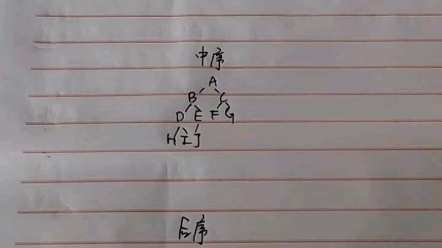 中序
A
B C
D E F G
H I J
后序